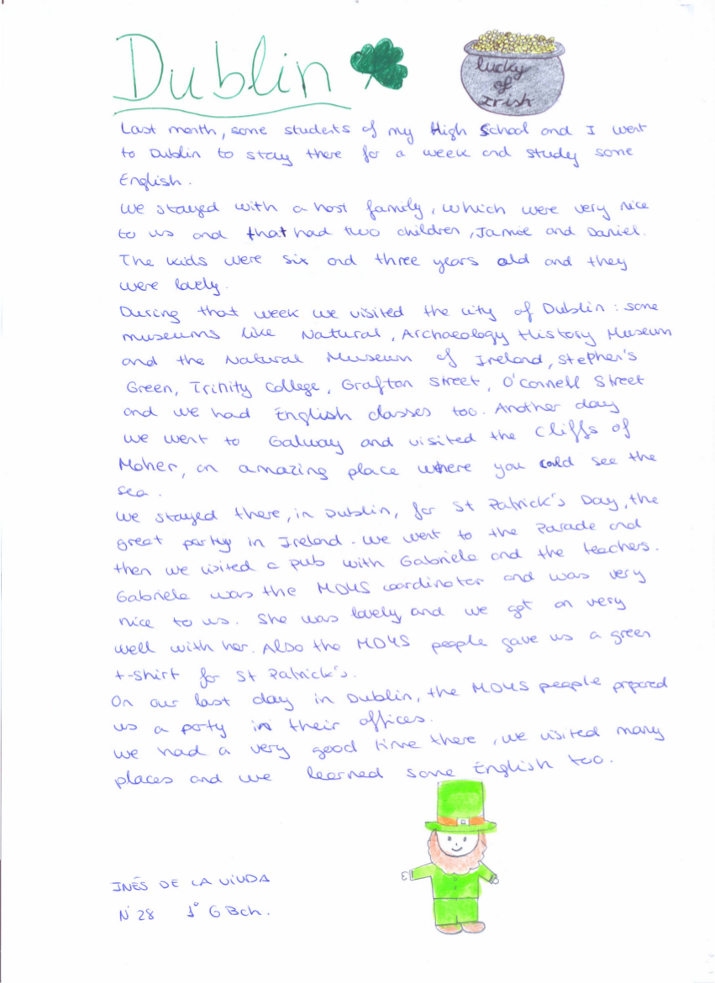 Dublin
lucky
of
Irish
Last month, some students of my High School and I went
to Dublin to stay there for a week and study some
English.
We stayed with a host family, which were very nice
to us and that had two children, Jamie and Daniel.
The kids were six and three years old and they
were lovely.
During that week we visited the city of Dublin: some
museums like Natural, Archaeology History Museum
and the Natural Museum of Ireland, Stephen's
Green, Trinity College, Grafton Street, O'Connell Street
and we had English classes too. Another day
we went to Galway and visited the Cliffs of
Moher, an amazing place where you could see the
sea.
We stayed there, in Dublin, for St Patrick's Day, the
great party in Ireland. We went to the Parade and
then we visited a pub with Gabriele and the teachers.
Gabriele was the MOUS coordinator and was very
nice to us. She was lovely and we got on very
well with her. Also the MOUS people gave us a green
t-shirt for St Patrick's.
On our last day in Dublin, the MOUS people prepared
us a party in their offices.
We had a very good time there, we visited many
places and we learned some English too.
INÉS DE LA VIUDA
Nº 28 1º G Bch.